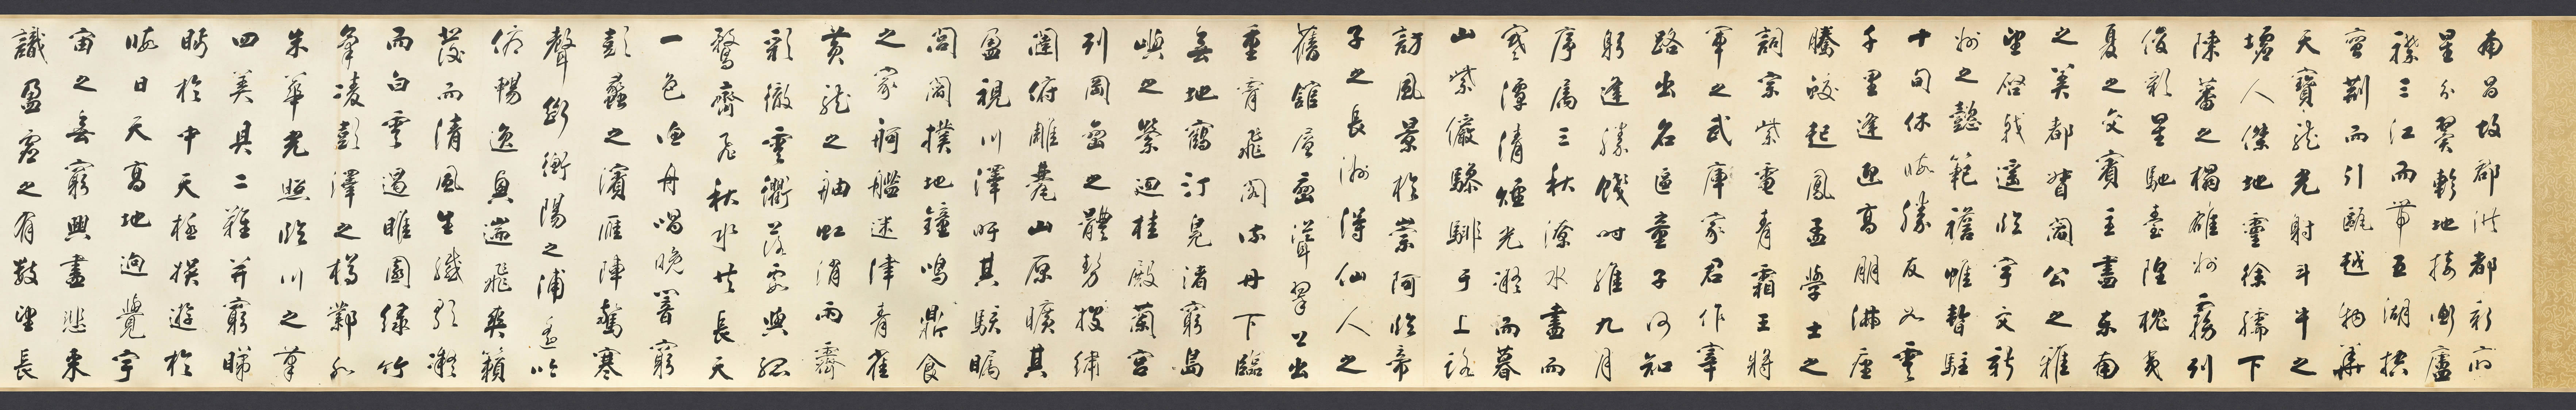 南昌故郡洪都新府
星分翼軫地接衡廬
襟三江而帶五湖控
蠻荊而引甌越物華
天寶龍光射斗牛之
墟人傑地靈徐孺下
陳蕃之榻雄州霧列
俊彩星馳臺隍枕夷
夏之交賓主盡東南
之美都督閻公之雅
望棨戟遙臨宇文新
州之懿範襜帷暫駐
十旬休暇勝友如雲
千里逢迎高朋滿座
騰蛟起鳳孟學士之
詞宗紫電青霜王將
軍之武庫家君作宰
路出名區童子何知
躬逢勝餞時維九月
序屬三秋潦水盡而
寒潭清煙光凝而暮
山紫儼驂騑于上路
訪風景於崇阿臨帝
子之長洲得仙人之
舊館層巒聳翠上出
重霄飛閣流丹下臨
無地鶴汀鳧渚窮島
嶼之縈迴桂殿蘭宮
列岡巒之體勢披繡
闥俯雕甍山原曠其
盈視川澤盱其駭矚
閭閻撲地鐘鳴鼎食
之家舸艦迷津青雀
黃龍之舳虹消雨霽
彩徹雲衢落霞與孤
鶩齊飛秋水共長天
一色漁舟唱晚響窮
彭蠡之濱雁陣驚寒
聲斷衡陽之浦遙吟
俯暢逸興遄飛爽籟
發而清風生纖歌凝
而白雲遏睢園綠竹
氣凌彭澤之樽鄴水
朱華光照臨川之筆
四美具二難并窮睇
眄於中天極娛遊於
暇日天高地迥覺宇
宙之無窮興盡悲來
識盈虛之有數望長